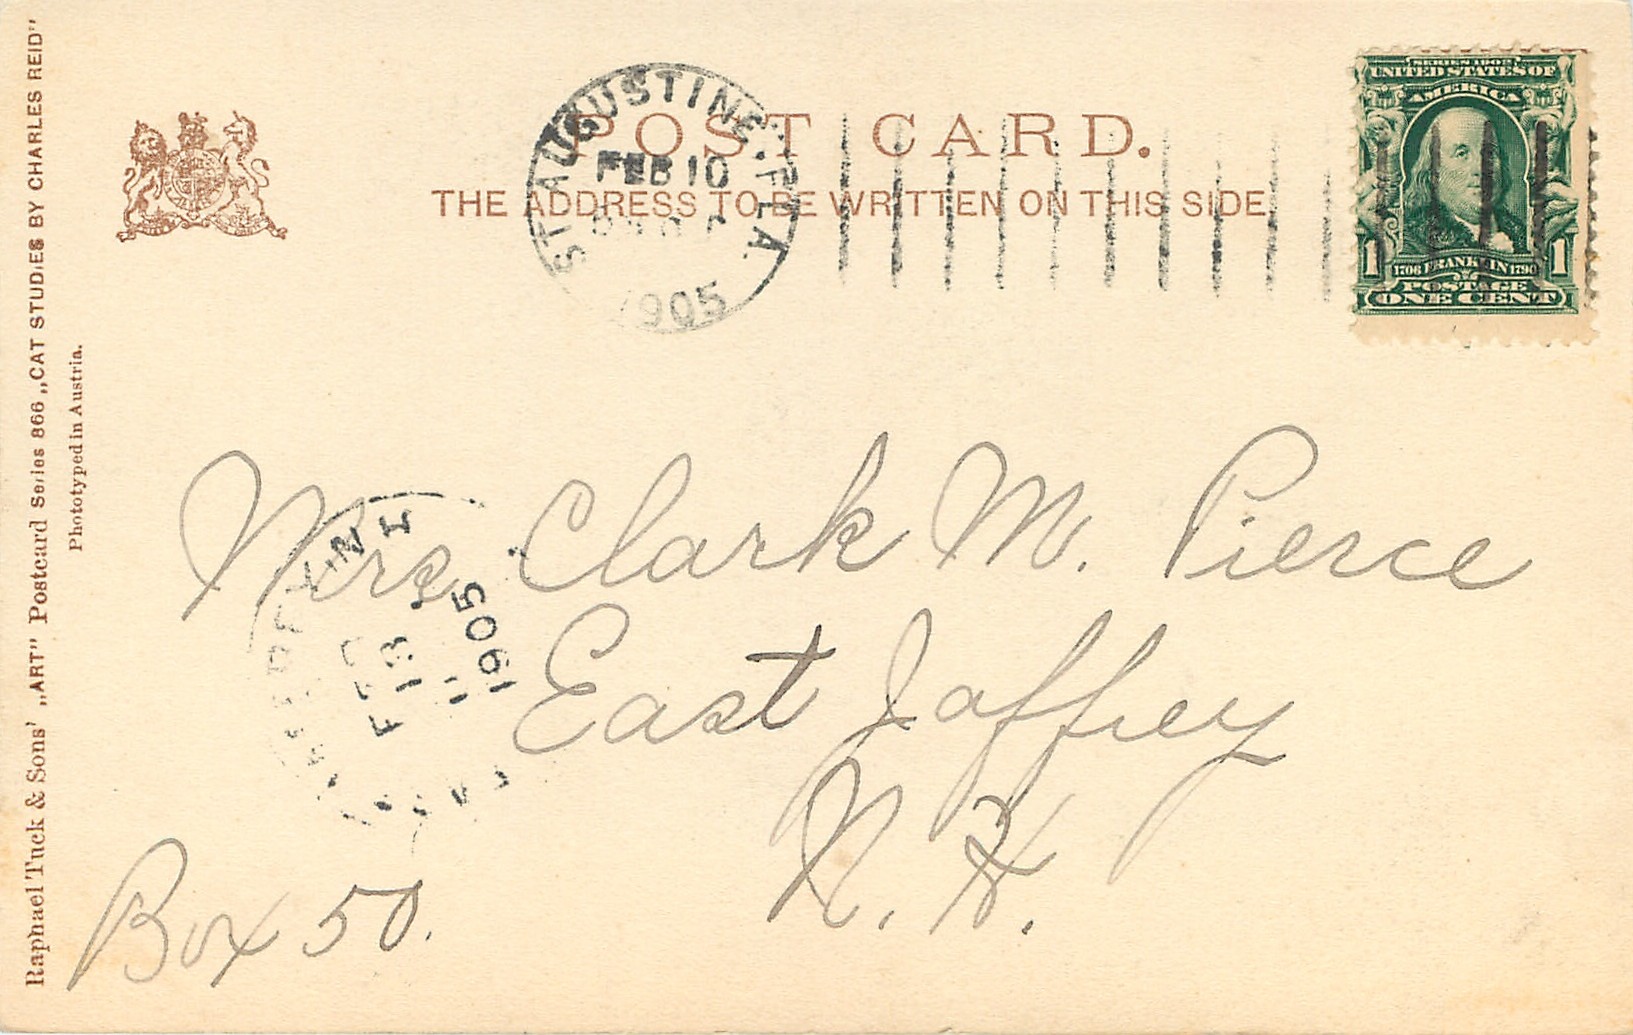 POST CARD.
THE ADDRESS TO BE WRITTEN ON THIS SIDE.
ST AUGUSTINE, FLA.
FEB 10
1905
SERIES 1902
UNITED STATES OF
AMERICA
1 1706 FRANKLIN 1790 1
POSTAGE
ONE CENT
Mrs Clark M. Pierce
East Jaffrey
N. H.
Box 50.
13
1905
Raphael Tuck & Sons' „ART" Postcard Series 866 „CAT STUDIES BY CHARLES REID"
Phototyped in Austria.